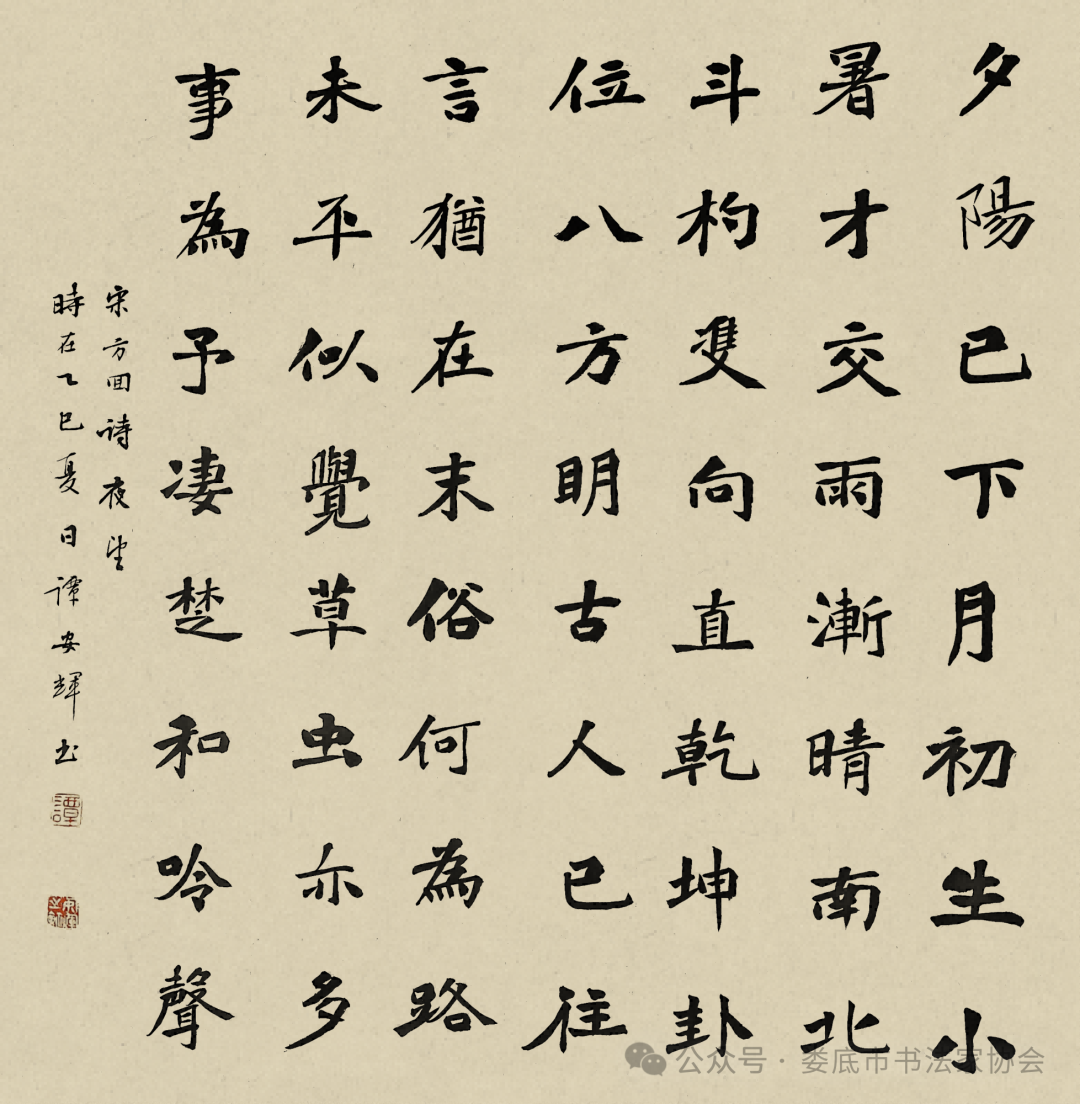 夕陽已下月初生小
暑才交雨漸晴南北
斗杓雙向直乾坤卦
位八方明古人已往
言猶在末俗何為路
未平似覺草虫亦多
事為予凄楚和吟聲
宋方回诗夜望
時在乙巳夏日谭安輝书
譚
公众号·娄底市书法家协会